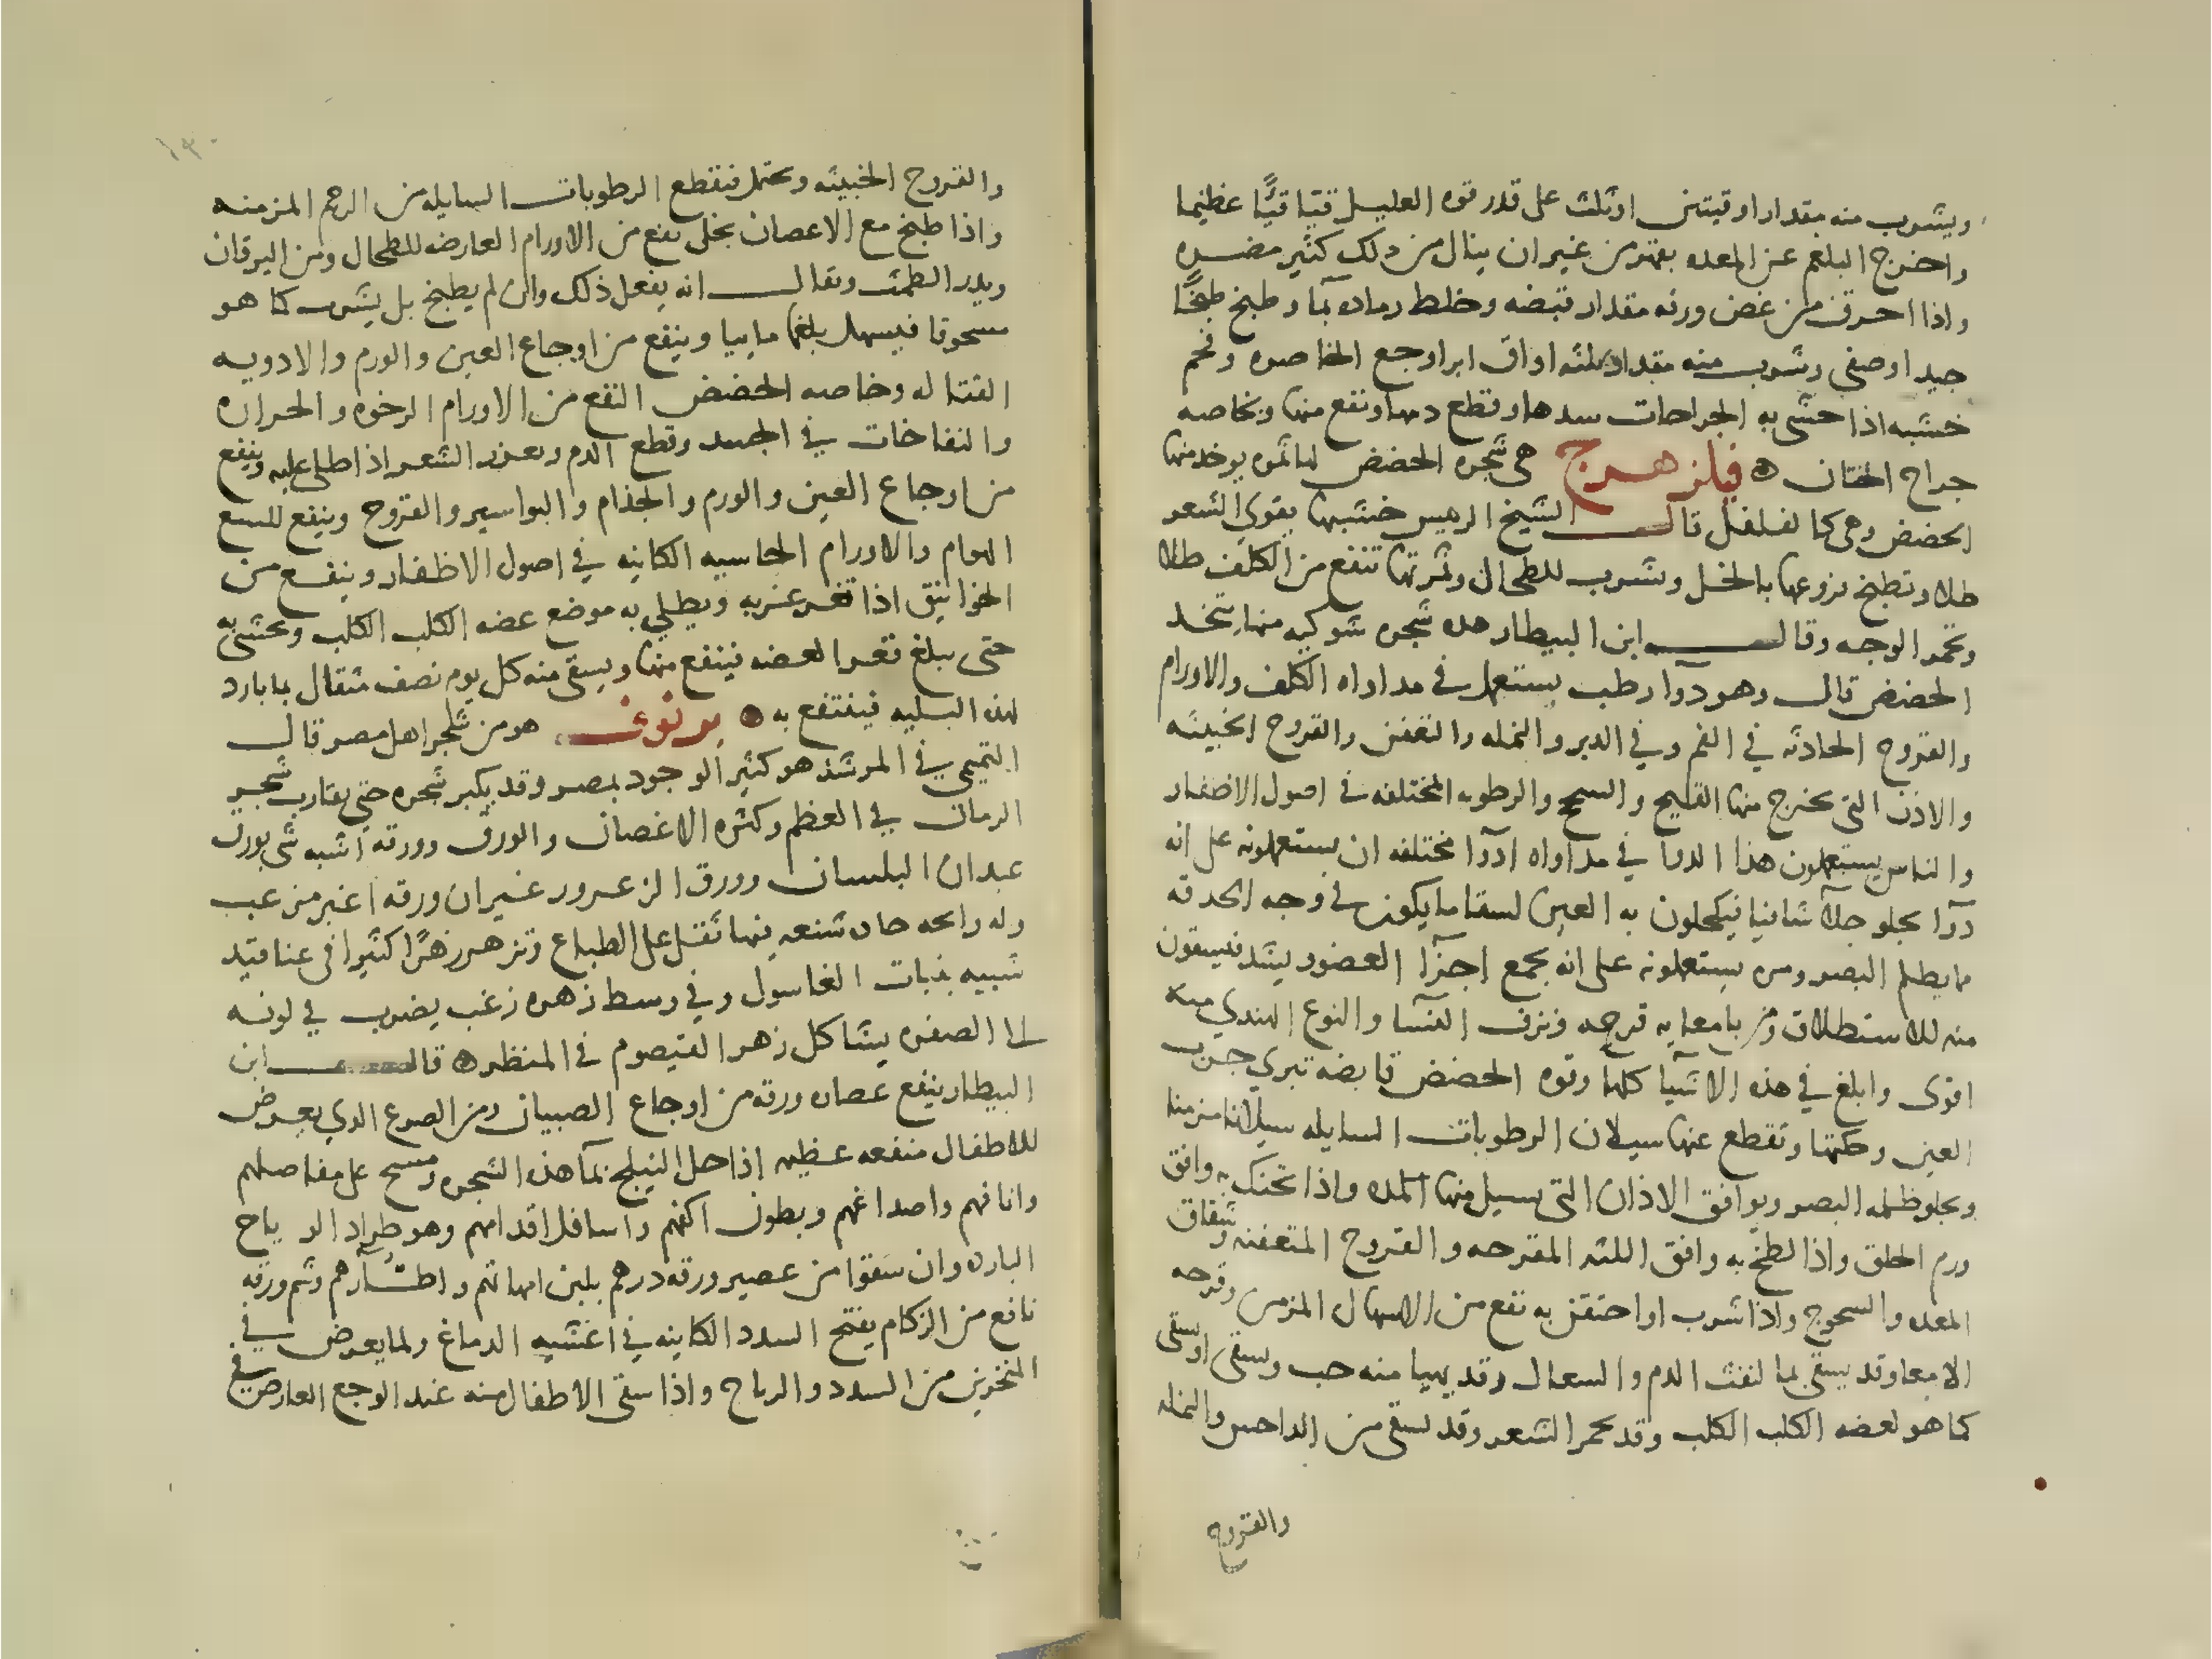 ويشرب منه مقدار اوقيتين او ثلث على قدر قوه العليل قيّا قيًّا عظيما
واخرج البلغم عن المعده بقهر من غير ان ينال من ذلك كثير مضره
واذا احرق من غض ورقه مقدار قبضه وخلط رماده بما وطبخ طبخًا
جيدا وصفى وشرب منه مقدار ثلثه اواق ابرا وجع الخاصره وفحم
خشبه اذا حشى به الجراحات سدها وقطع دمها ونفع منها وبخاصه
جراح الختان ه فيلزهرج هى شجره الحضض لها ثمره يوخد منها
الحضض وهى كالفلفل قال الشيخ الرييس خشبها يقوي الشعر
طلا وتطبخ فروعها بالخل وتشرب للطحال وثمرتها تنفع من الكلف طلا
وتحمر الوجه وقال ابن البيطار هده شجره شوكيه منها يتخد
الحضض قال وهو دوا رطب يستعمل في مداواه الكلف والاورام
والقروح الحادثه في الفم وفي الدبر والنمله والتعفن والقروح الخبيثه
والاذن التى يخرج منها القيح والسحج والرطوبه المختلفه في اصول الاضفار
والناس يستعملون هذا الدوا في مداواه ادوآ مختلفه ان يستعملونه على انه
دوآ يجلو جلآ شافيا فيكحلون به العين لسقا ما يكون في وجه الحدقه
ما يظلم البصر ومره يستعملونه على انه يجمع اجزآ العضو ويشد فيسقون
منه للاستطلاق ومن بامعايه قرحه ونزف النسآ والنوع الهندي منه
اقوى وابلغ في هذه الاشيا كلها وقوه الحضض قابضه تبري جرب
العين وحكتها وتقطع عنها سيلان الرطوبات السايله سيلانا مزمنا
ويجلو ظلمه البصر ويوافق الاذان التى يسيل منها المده واذا تحنك به وافق
ورم الحلق واذا لطخ به وافق اللثه المقرحه والقروح المتعفنه وشقاق
المعده والسحوج واذا شرب او احتقن به نفع من الاسهال المزمن وقرحه
الامعا وقد يسقى بما لنفث الدم والسعال وقد يهيا منه حب ويسقى او يسقى
كما هو لعضه الكلب الكلب وقد يحمر الشعر وقد يسقى من الداحس والنمله
والقروح
والقروح الخبيثه ويحتمل فتقطع الرطوبات السايله من الرحم المزمنه
واذا طبخ مع الاغصان بخل نفع من الاورام العارضه للطحال ومن اليرقان
ويدر الطمث ويقال انه يفعل ذلك وان لم يطبخ بل يشرب كما هو
مسحوقا فيسهل بلغما ماييا وينفع من اوجاع العين والورم والادويه
القتاله وخاصه الحضض النفع من الاورام الرخوه والحراره
والنفاخات في الجسد وقطع الدم ويغزر الشعر اذا طلى عليه وينفع
من اوجاع العين والورم والجذام والبواسير والقروح وينفع للسع
الهوام والاورام الجاسيه الكاينه في اصول الاظفار وينفع من
الخوانيق اذا تغرغر به ويطلي به موضع عضه الكلب الكلب ويحشى به
حتى يبلغ قعر العضه فينفع منها ويسقى منه كل يوم نصف مثقال بما بارد
لهذه البليه فينتفع به ه برنوف هو من شجر اهل مصر قال
التميمي في المرشد هو كثير الوجود بمصر وقد يكبر شجره حتى يقارب شجر
الرمان في العظم وكثره الاغصان والورق وورقه اشبه شى بورق
عيدان البلسان وورق الزعرور غير ان ورقه اغبر مزغب
وله رايحه حاده شنعه فيها ثقل على الطباع وتزهر زهرًا كثيرا فى عناقيد
شبيه بنبات الغاسول وفي وسط زهره زغب يضرب في لونه
الى الصفره يشاكل زهر القيصوم في المنظر ه قال ابن
البيطار ينفع عصاره ورقه من اوجاع الصبيان ومن الصرع الدي يعرض
للاطفال منفعه عظيمه اذا حل النيلج بمآ هذه الشجره ومسح على مفاصلهم
وانافهم واصداغهم وبطون اكفهم واسافل اقدامهم وهو طراد الرياح
البارده وان سقوا من عصير ورقه درهم بلبن امهاتهم و اظـآرهم وشم ورقه
نافع من الزكام يفتح السدد الكاينه في اغشيه الدماغ ولما يعرض في
المنخرين من السدد والرياح واذا سقى الاطفال منه عند الوجع العارض في